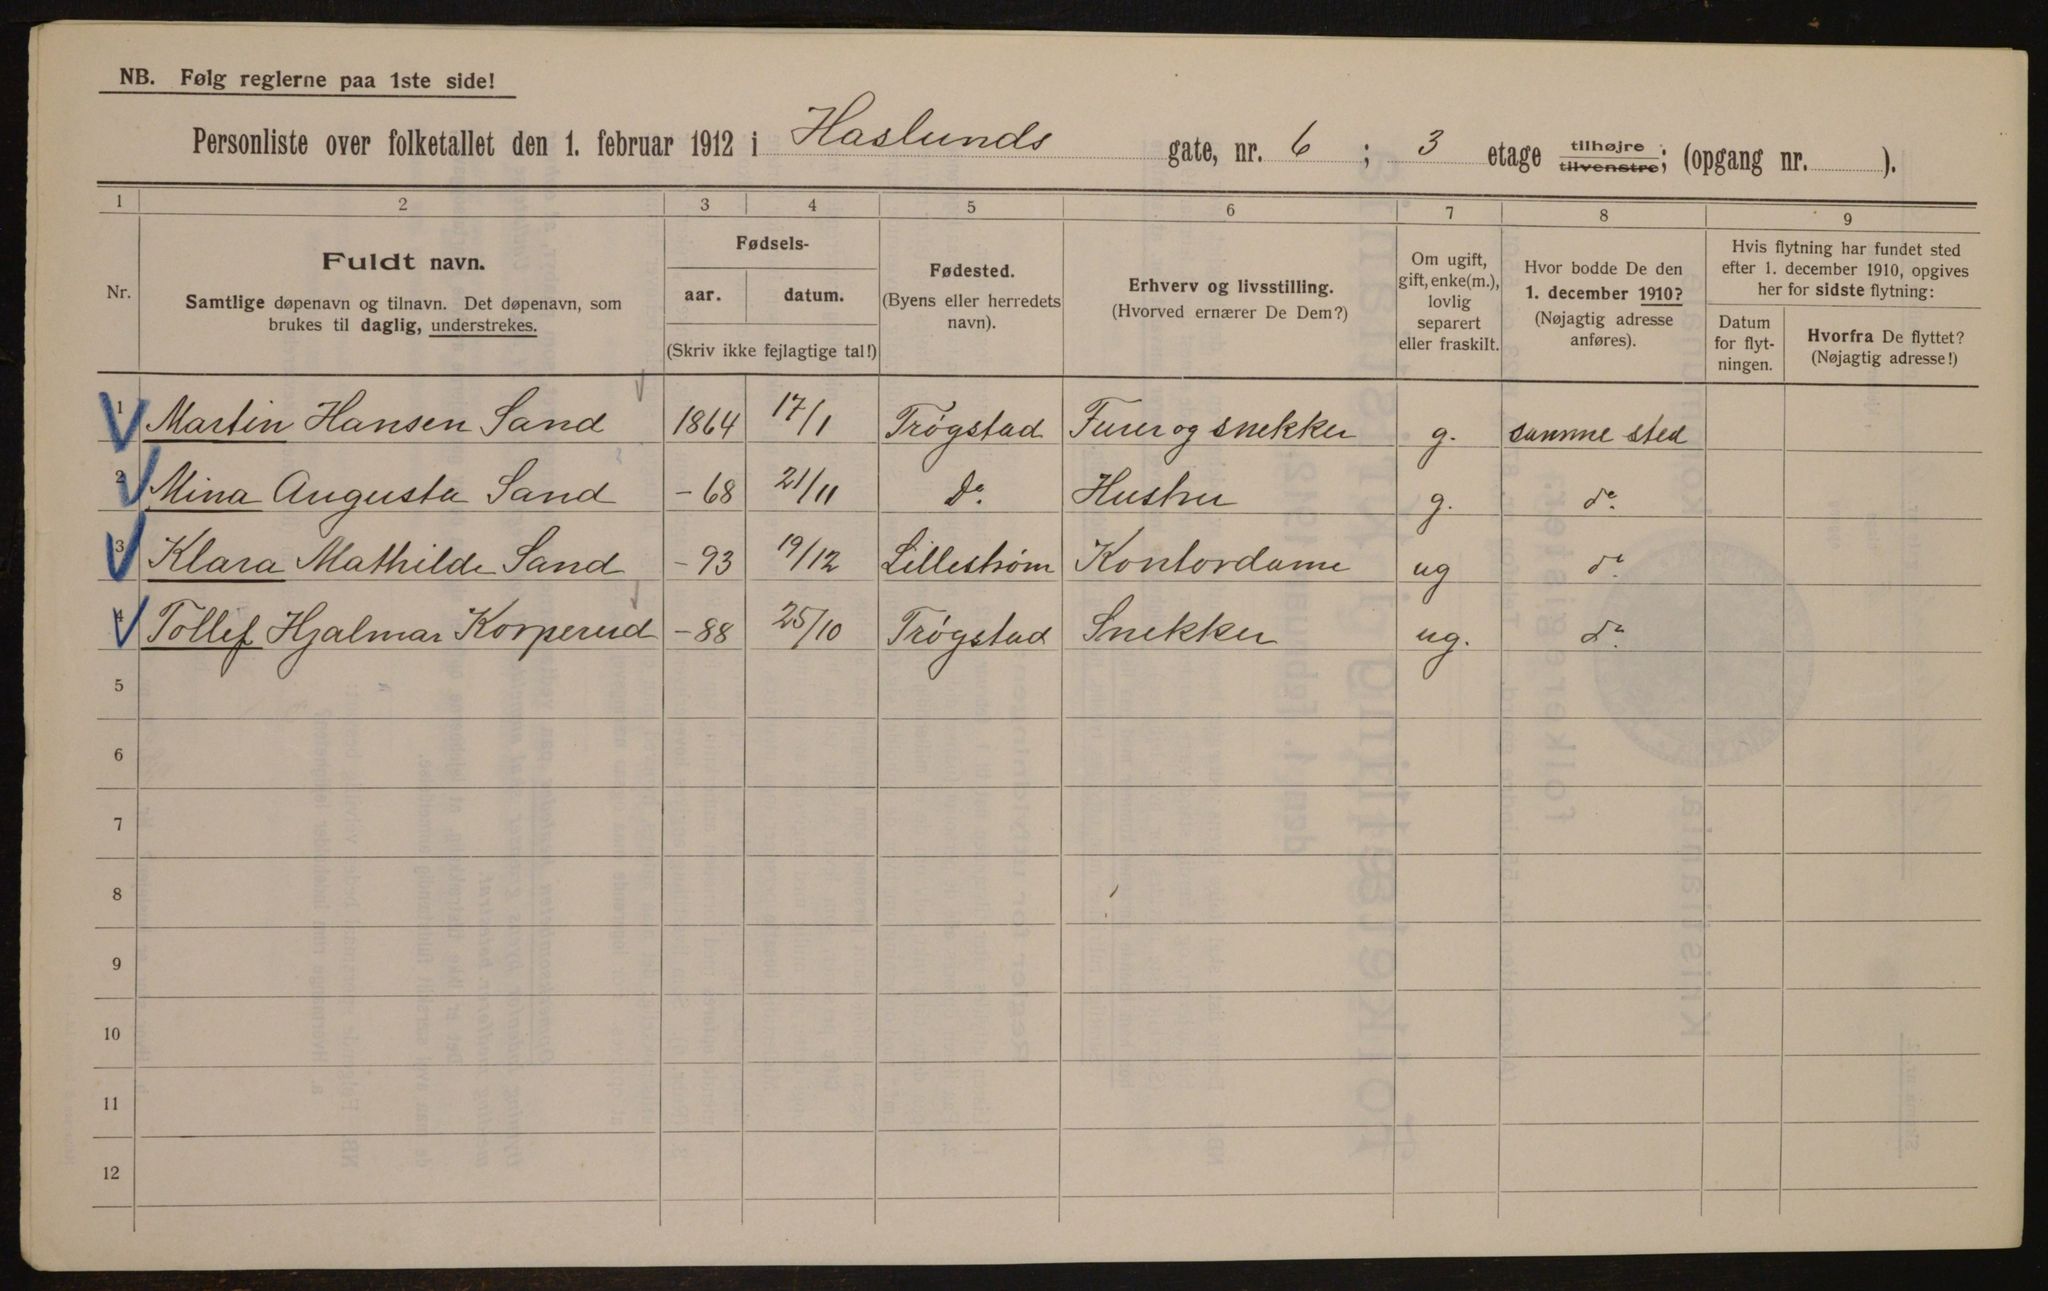 NB. Følg reglerne paa 1ste side!
Personliste over folketallet den 1. februar 1912 i Haslunds gate, nr. 6 ; 3 etage tilhøjre tilvenstre; (opgang nr. ).
1 2 3 4 5 6 7 8 9
Nr.
Fuldt navn.
Samtlige døpenavn og tilnavn. Det døpenavn, som
brukes til daglig, understrekes.
Fødsels-
aar. datum.
(Skriv ikke fejlagtige tal!)
Fødested.
(Byens eller herredets
navn).
Erhverv og livsstilling.
(Hvorved ernærer De Dem?)
Om ugift,
gift, enke(m.),
lovlig
separert
eller fraskilt.
Hvor bodde De den
1. december 1910?
(Nøjagtig adresse
anføres).
Hvis flytning har fundet sted
efter 1. december 1910, opgives
her for sidste flytning:
Datum
for flyt-
ningen.
Hvorfra De flyttet?
(Nøjagtig adresse!)
1 Martin Hansen Sand 1864 17/1 Trøgstad og snekker g. samme sted
2 Mina Augusta Sand -68 21/11 Do. Hustru g. do.
3 Klara Mathilde Sand -93 19/12 Lillestrøm Kontordame ug do.
4 Tollef Hjalmar Korperud -88 25/10 Trøgstad Snekker ug. do.
5
6
7
8
9
10
11
12